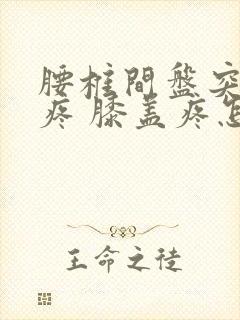 腰柱間盤突
疼 膝盖疼怎
王命之徒